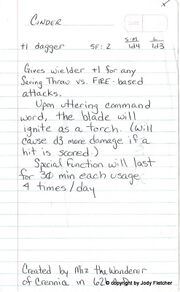 CINDER
S-M L
+1 dagger SF: 2 1d4 1d3
Gives wielder +1 for any
Saving Throw vs. FIRE-based
attacks.
Upon uttering command
word, the blade will
ignite as a torch. (Will
cause d3 more damage if a
hit is scored.)
Special Function will last
for 30 min each usage
4 times/day
Created by Miz the Wanderer
of Crennia in
© copyright by Jody Fletcher